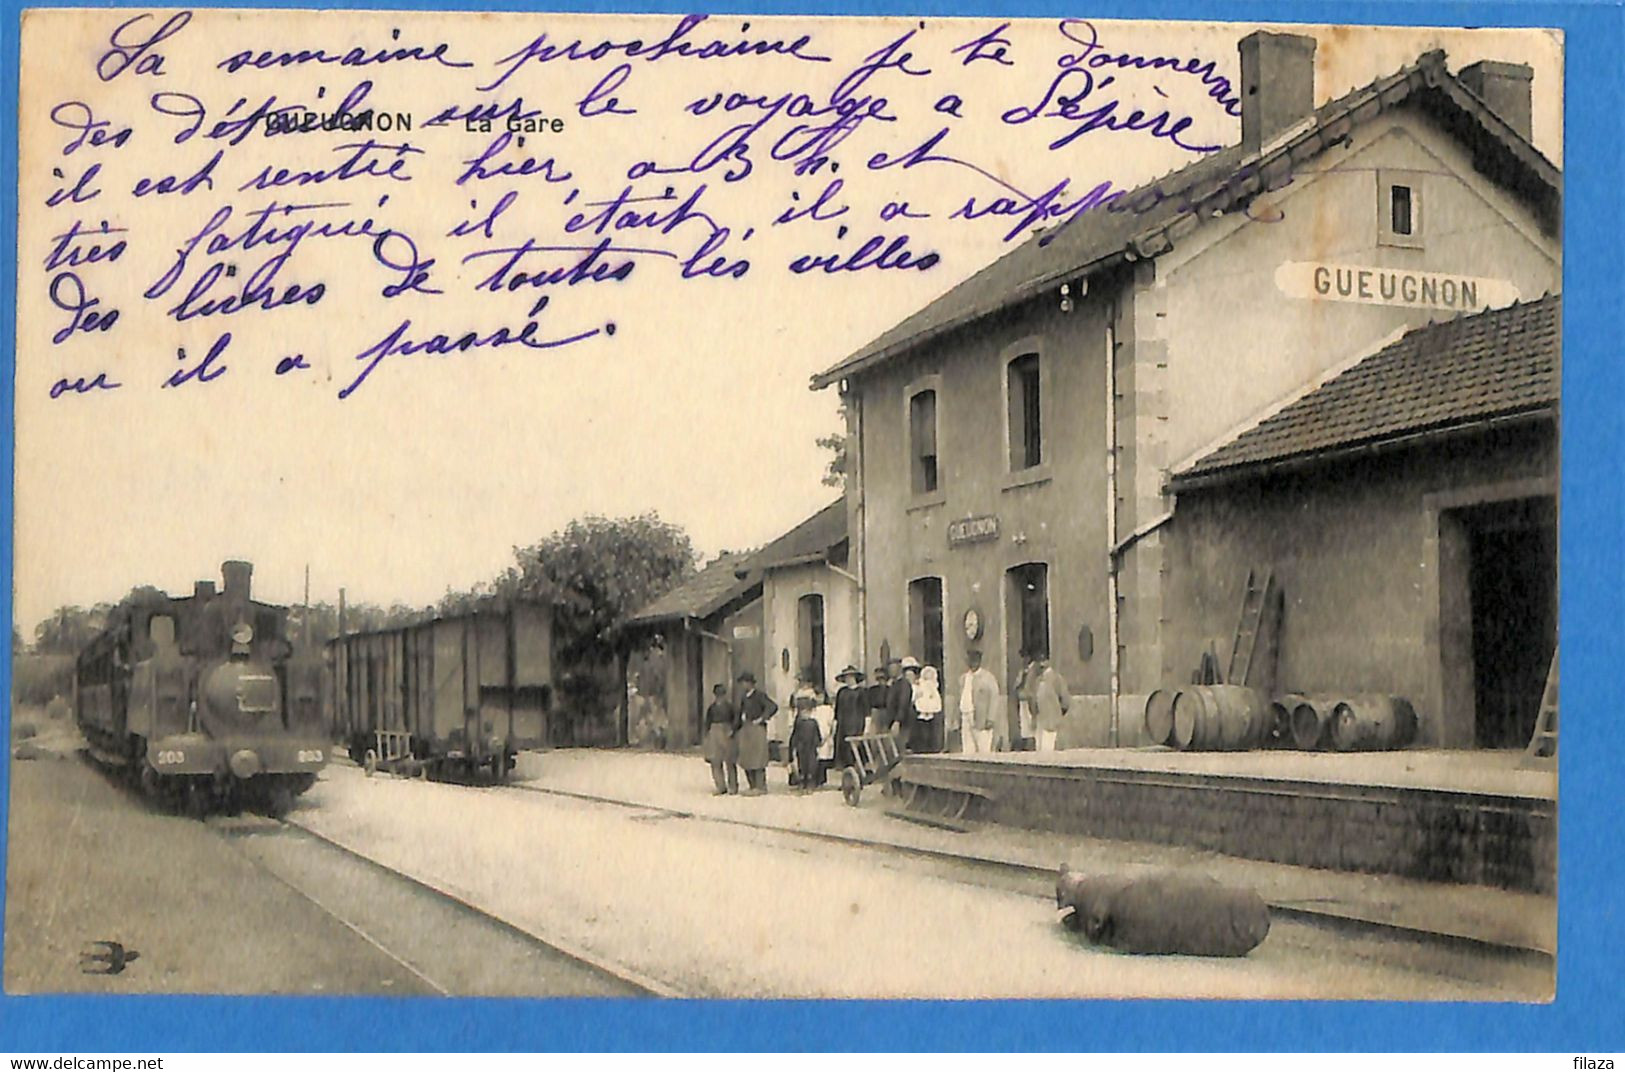 La semaine prochaine je te donnerai
des détails sur le voyage a Pépère
GUEUGNON - La Gare
il est rentré hier, a 3 h. et
très fatigué il était, il a rapporté
des livres de toutes lés villes
ou il a passé.
GUEUGNON
GUEUGNON
203 203
filaza